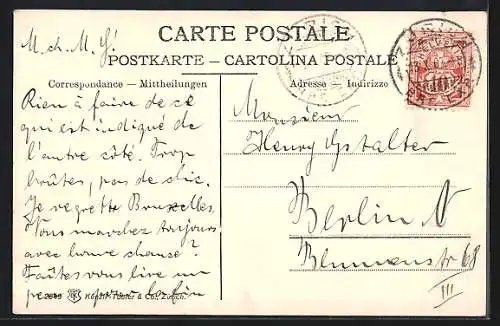 CARTE POSTALE
POSTKARTE – CARTOLINA POSTALE
Correspondance – Mittheilungen
Adresse – Indirizzo
M. ch. M. Y!
Rien à faire de ce
qui est indiqué de
l'autre côté. Trop
brûtes, pas de chic.
Je regrette Bruxelles,
Vous marchez toujours
avec bonne chance?
Faites vous live un
peu pour la fin
Monsieur
Henry Gstalter
Berlin N
Blumenstr 68
III
& Co., Zürich.